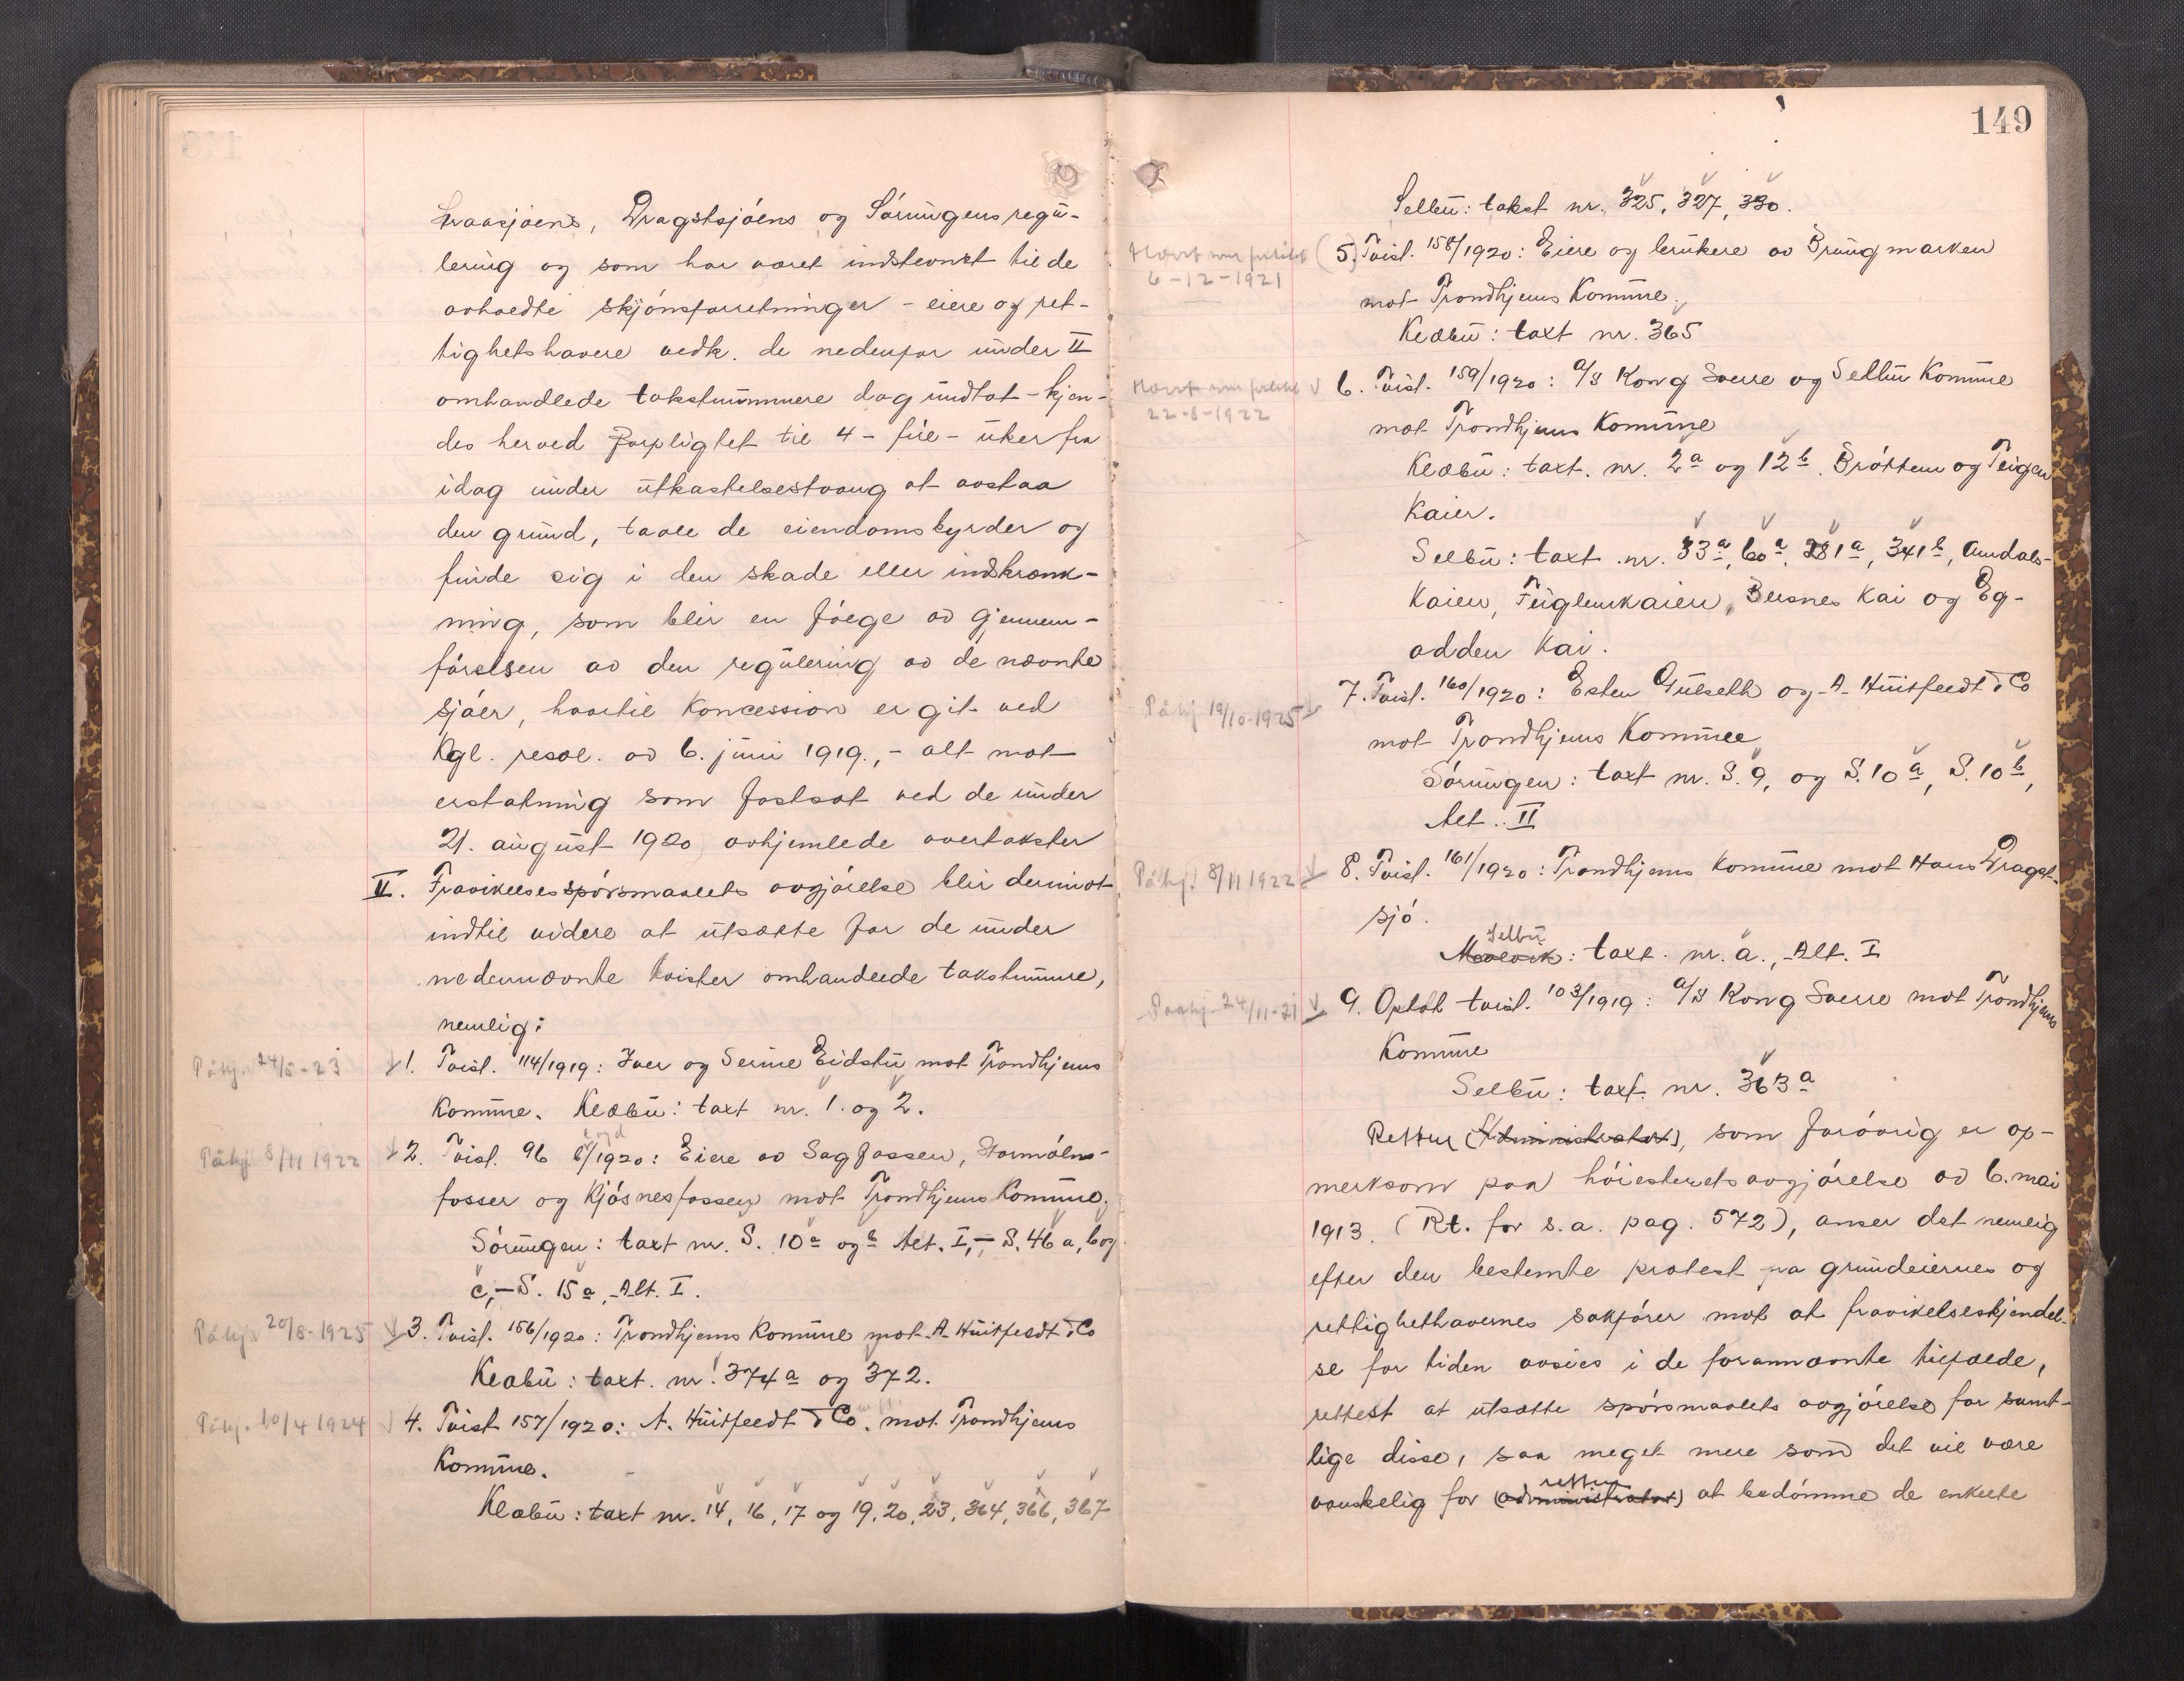 Sraasjøens, Dragstsjøens og Sørungens regu-
lering og som har været indstevnet til de
avholdte skjønsforretninger - eiere og ret-
tighetshavere vedk. de nedenfor under II
omhandlede takstnummere dog undtat - kjen-
des herved forpligtet til 4 - fire - uker fra
idag under utkastelsestvang at avstaa
den grund, taale de eiendomsbyrder og
finde sig i den skade eller indskrænk-
ning, som blir en følge av gjennem-
førelsen av den regulering av de nævnte
sjøer, hvortil koncession er git ved
Kgl. resol. av 6. juni 1919, - alt mot
erstatning som fastsat ved de under
21. august 1920 avhjemlede overtakster
II. Fravikelsesspørsmaalets avgjørelse blir derimot
indtil videre at utsætte for de under
nedennævnte tvister omhandlede takstnummre,
nemlig:
Påhj. 24/5-23 1. Tvist. 114/1919: Iver og Serine Eidstu mot Trondhjems
Komme. Klæbu: taxt nr. 1. og 2.
Påhj 8/11 1922 2. Tvist. 96 /1920: Eiere av Sagfossen, Stormølns-
fosser og Kjøsnesfossen mot Trondhjems Komme.
Sørungen: taxt nr. S. 10a og b Alt. I, - S. 46 a, b og
c, - S. 15a, Alt. I.
Påhj. 20/8-1925 3. Tvist. 156/1920: Trondhjems Komme mot A. Huitfeldt & Co
Klæbu: taxt. nr. 374a og 372.
Påhj. 10/4 1924 4. Tvist 157/1920: A. Huitfeldt & Co. mot Trondhjems
Komme.
Klæbu: taxt nr. 14, 16, 17 og 19, 20, 23, 364, 366, 367
149
Selbu: takst nr. 325, 327, 330.
Hævet 6-12-1921 (5.) Tvist. 158/1920: Eiere og brukere av Brungmarken
mot Trondhjems Komme.
Klæbu: taxt nr. 365
Hævet 22-8-1922 6. Tvist. 159/1920: A/S Kong Sverre og Selbu Komme
mot Trondhjems Komme
Klæbu: taxt. nr. 2a og 12b. Brøttem og Teigen
Kaier.
Selbu: taxt. nr. 33a, 60a, 281a, 341b, Amdals-
kaien, Fuglemkaien, Bersnes Kai og Eg-
odden Kai.
Påhj 19/10-1925 7. Tvist. 160/1920: Esten Gulseth og A. Huitfeldt & Co
mot Trondhjems Komme
Sørungen: taxt nr. S. 9, og S. 10a, S. 10b,
Alt. II
Påhj. 8/11 1922 8. Tvist. 161/1920: Trondhjems Komme mot Hans Dragst-
sjø.
Selbu
Malvik: taxt. nr. a., Alt. I
Paahj. 24/11-21 9. Opkob tvist. 103/1919: A/S Kong Sverre mot Trondhjems
Komme
Selbu: taxt. nr. 363a
Retten (Administrator), som forøvrig er op-
merksom paa høiesteretsavgjørelse av 6. mai
1913. (Rt. for s.a. pag. 572), anser det nemlig
efter den bestemte protest fra grundeiernes og
rettighethavernes sakfører mot at fravikelseskjendel-
se for tiden avsies i de forannævnte tilfælde,
rettest at utsætte spørsmaalets avgjørelse for samt-
lige disse, saa meget mere som det vil være
retten
vanskelig for (administrator) at bedømme de enkelte